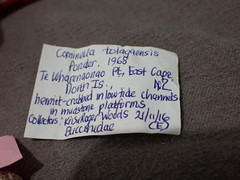 Cominella tolagaensis
Ponder, 1968
Te Wharenaonao Pt, East Cape,
North Is., NZ
hermit-crabbed in low tide channels
in mudstone platforms
Collectors: Woods 21/11/16
Buccinidae (E)